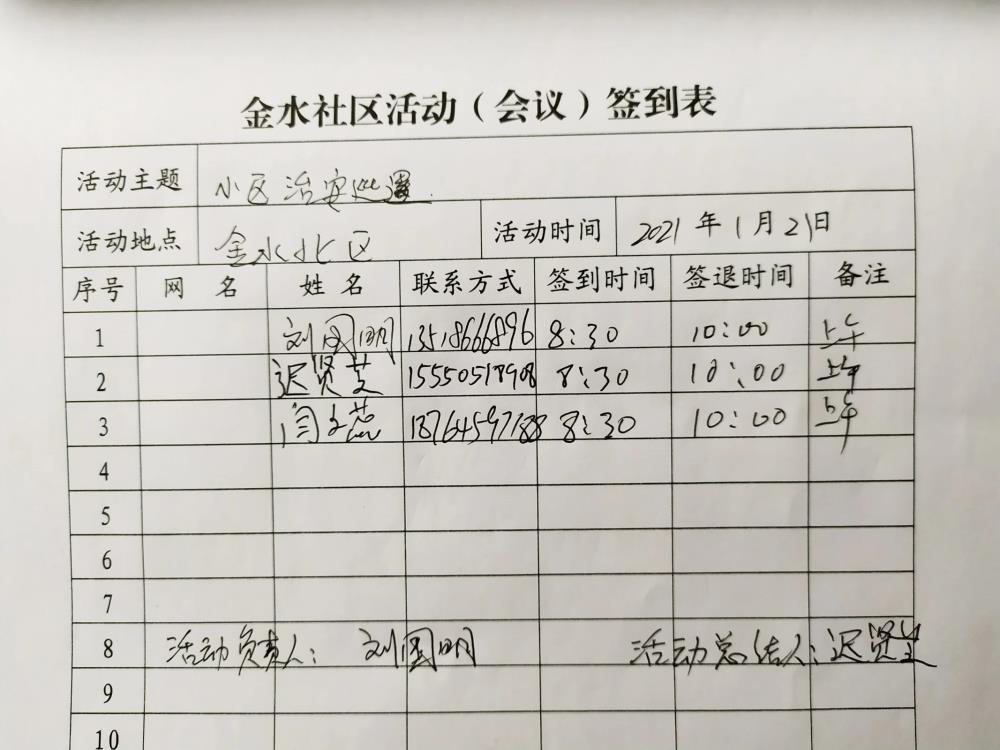 金水社区活动（会议）签到表
活动主题 小区治安巡逻
活动地点 金水北区 活动时间 2021年1月21日
序号 网名 姓名 联系方式 签到时间 签退时间 备注
1 刘国明 13518666896 8:30 10:00 上午
2 迟贤芝 15550517908 8:30 10:00 上午
3 闫 18764597188 8:30 10:00 上午
4
5
6
7
8 活动负责人: 刘国明 活动总结人: 迟贤芝
9
10